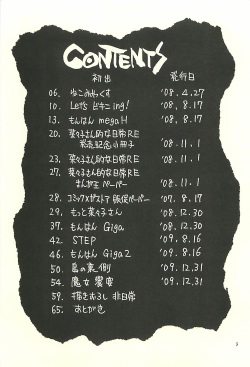 CONTENTS
初出 発行日
06. ねこみみっくす '08.4.27
10. Let's ビキニing! '08.8.17
13. もんはん megaH '08.8.17
20. 菜々子さん的な日常RE
発売記念小冊子 '08.11.1
23. 菜々子さん的な日常RE '08.11.1
27. 菜々子さん的な日常RE
まんが王ペーパー '08.11.1
28. コミックメガストア 販促ペーパー '07.8.17
29. もっと菜々子さん '08.12.30
37. もんはん Giga '08.12.30
42. STEP '09.8.16
46. もんはん Giga2 '09.8.16
50. 島の裏側 '09.12.31
54. 魔女響宴 '09.12.31
59. 描きおろし 非日常
65. あとがき
5